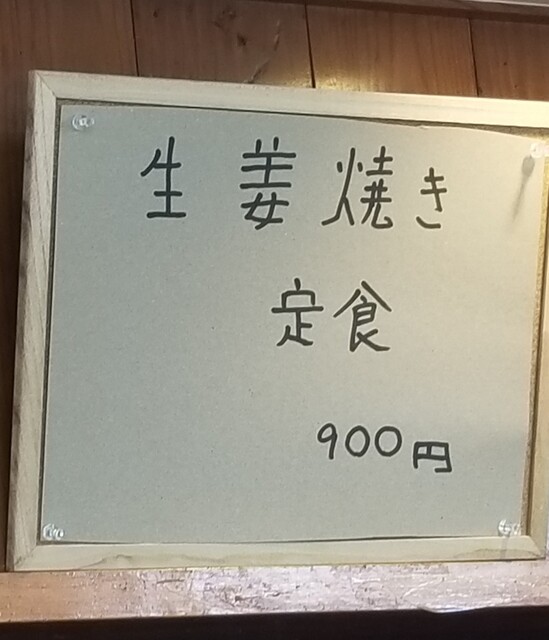 生姜焼き
定食
900円